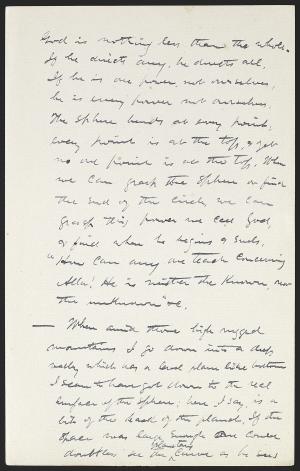 God is nothing less than the whole.
If he directs any, he directs all,
If he is one power, not ourselves,
he is every power not ourselves,
The sphere bends at every point;
every point is at the top, & yet
no one point is at the top, When
we can grasp the sphere or find
the end of the circle, we can
grasp this power we call God,
or find where he begins & ends,
"How can any one teach concerning
Alla! He is neither the known, nor
the unknown" &c.
— When amid these high rugged
mountains I go down into a deep
valley which has a level plain like bottom
I seem to have got down to the real
surface of the sphere; here I say, is a
bit of the back of the planet, If the
space was large enough one could
doubtless see the curve as he sees